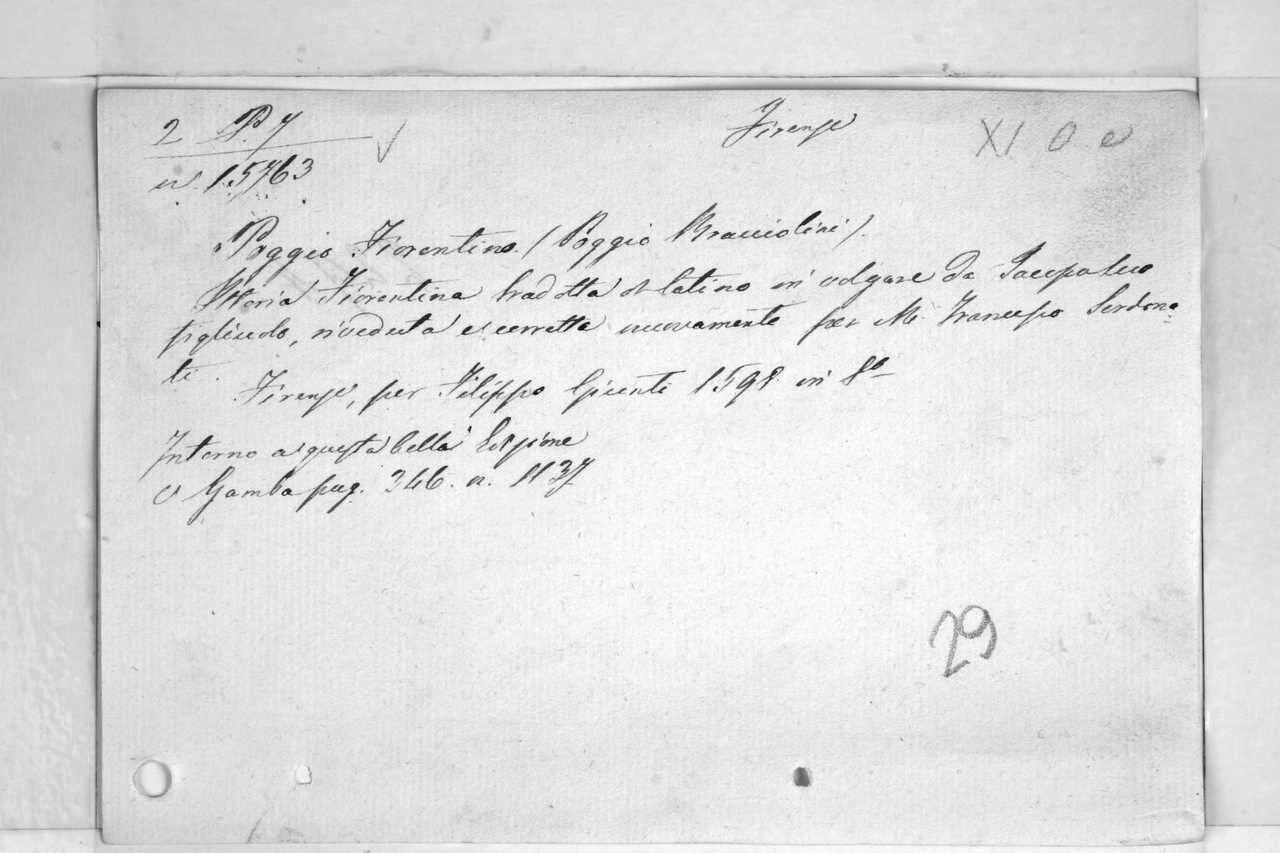 2 P. 7 Firenze XI O e
n. 15763
Poggio Fiorentino (Poggio Bracciolini).
Istoria Fiorentina tradotta di latino in volgare da Iacopo suo
figliuolo, riveduta e corretta nuovamente per M. Francesco Serdona-
ti. Firenze, per Filippo Giunti 1598 in 8º
Intorno a questa bella Edizione
v Gamba pag. 346. n. 1137
29